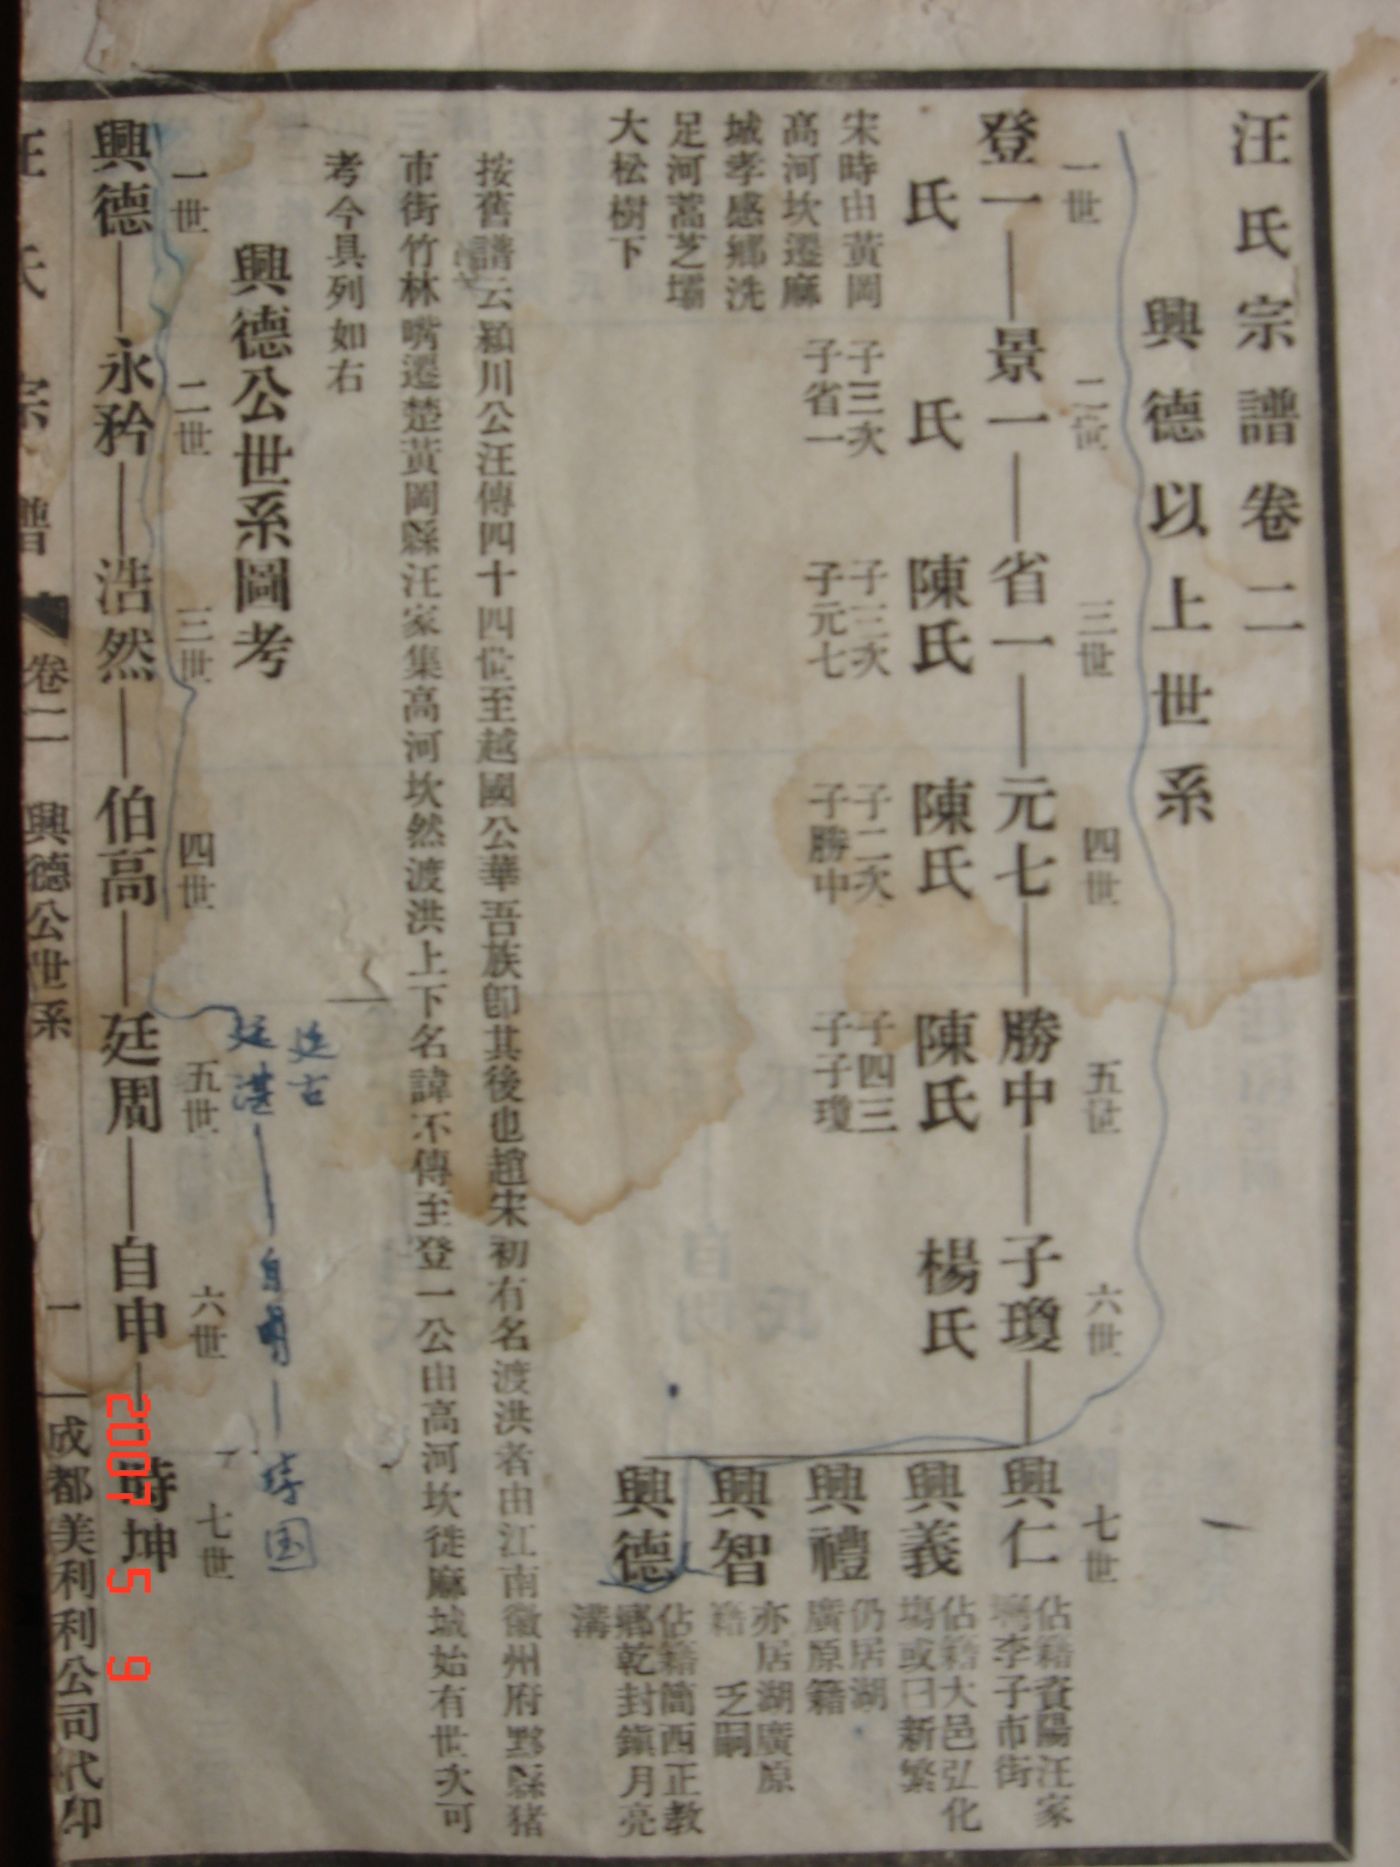 汪氏宗譜卷二
興德以上世系
一世
二世
三世
四世
五世
六世
七世
登一
景一
省一
元七
勝中
子瓊
興仁
佔籍資陽汪家
李子市街
興義
佔籍大邑弘化
塲或曰新繁
興禮
仍居湖
廣原籍
興智
亦居湖廣原
籍 乏嗣
興德
佔籍簡西正教
鄉乾封鎮月亮
溝
氏
氏
陳氏
陳氏
陳氏
楊氏
宋時由黃岡
高河坎遷麻
城孝感鄉洗
足河蒿芝壩
大松樹下
子三次
子省一
子二次
子元七
子二次
子勝中
子四三
子子瓊
按舊譜云潁川公汪傳四十四世至越國公華吾族卽其後也趙宋初有名渡洪者由江南徽州府黟縣猪
市街竹林嘴遷楚黃岡縣汪家集高河坎然渡洪上下名諱不傳至登一公由高河坎徙麻城始有世次可
考今具列如右
興德公世系圖考
延古
延湛
自明
国
一世
二世
三世
四世
五世
六世
七世
興德
永矜
浩然
伯高
廷周
自申
時坤
汪氏宗譜
卷二
興德公世系
一
成都美利利公司代印
2007 5 9